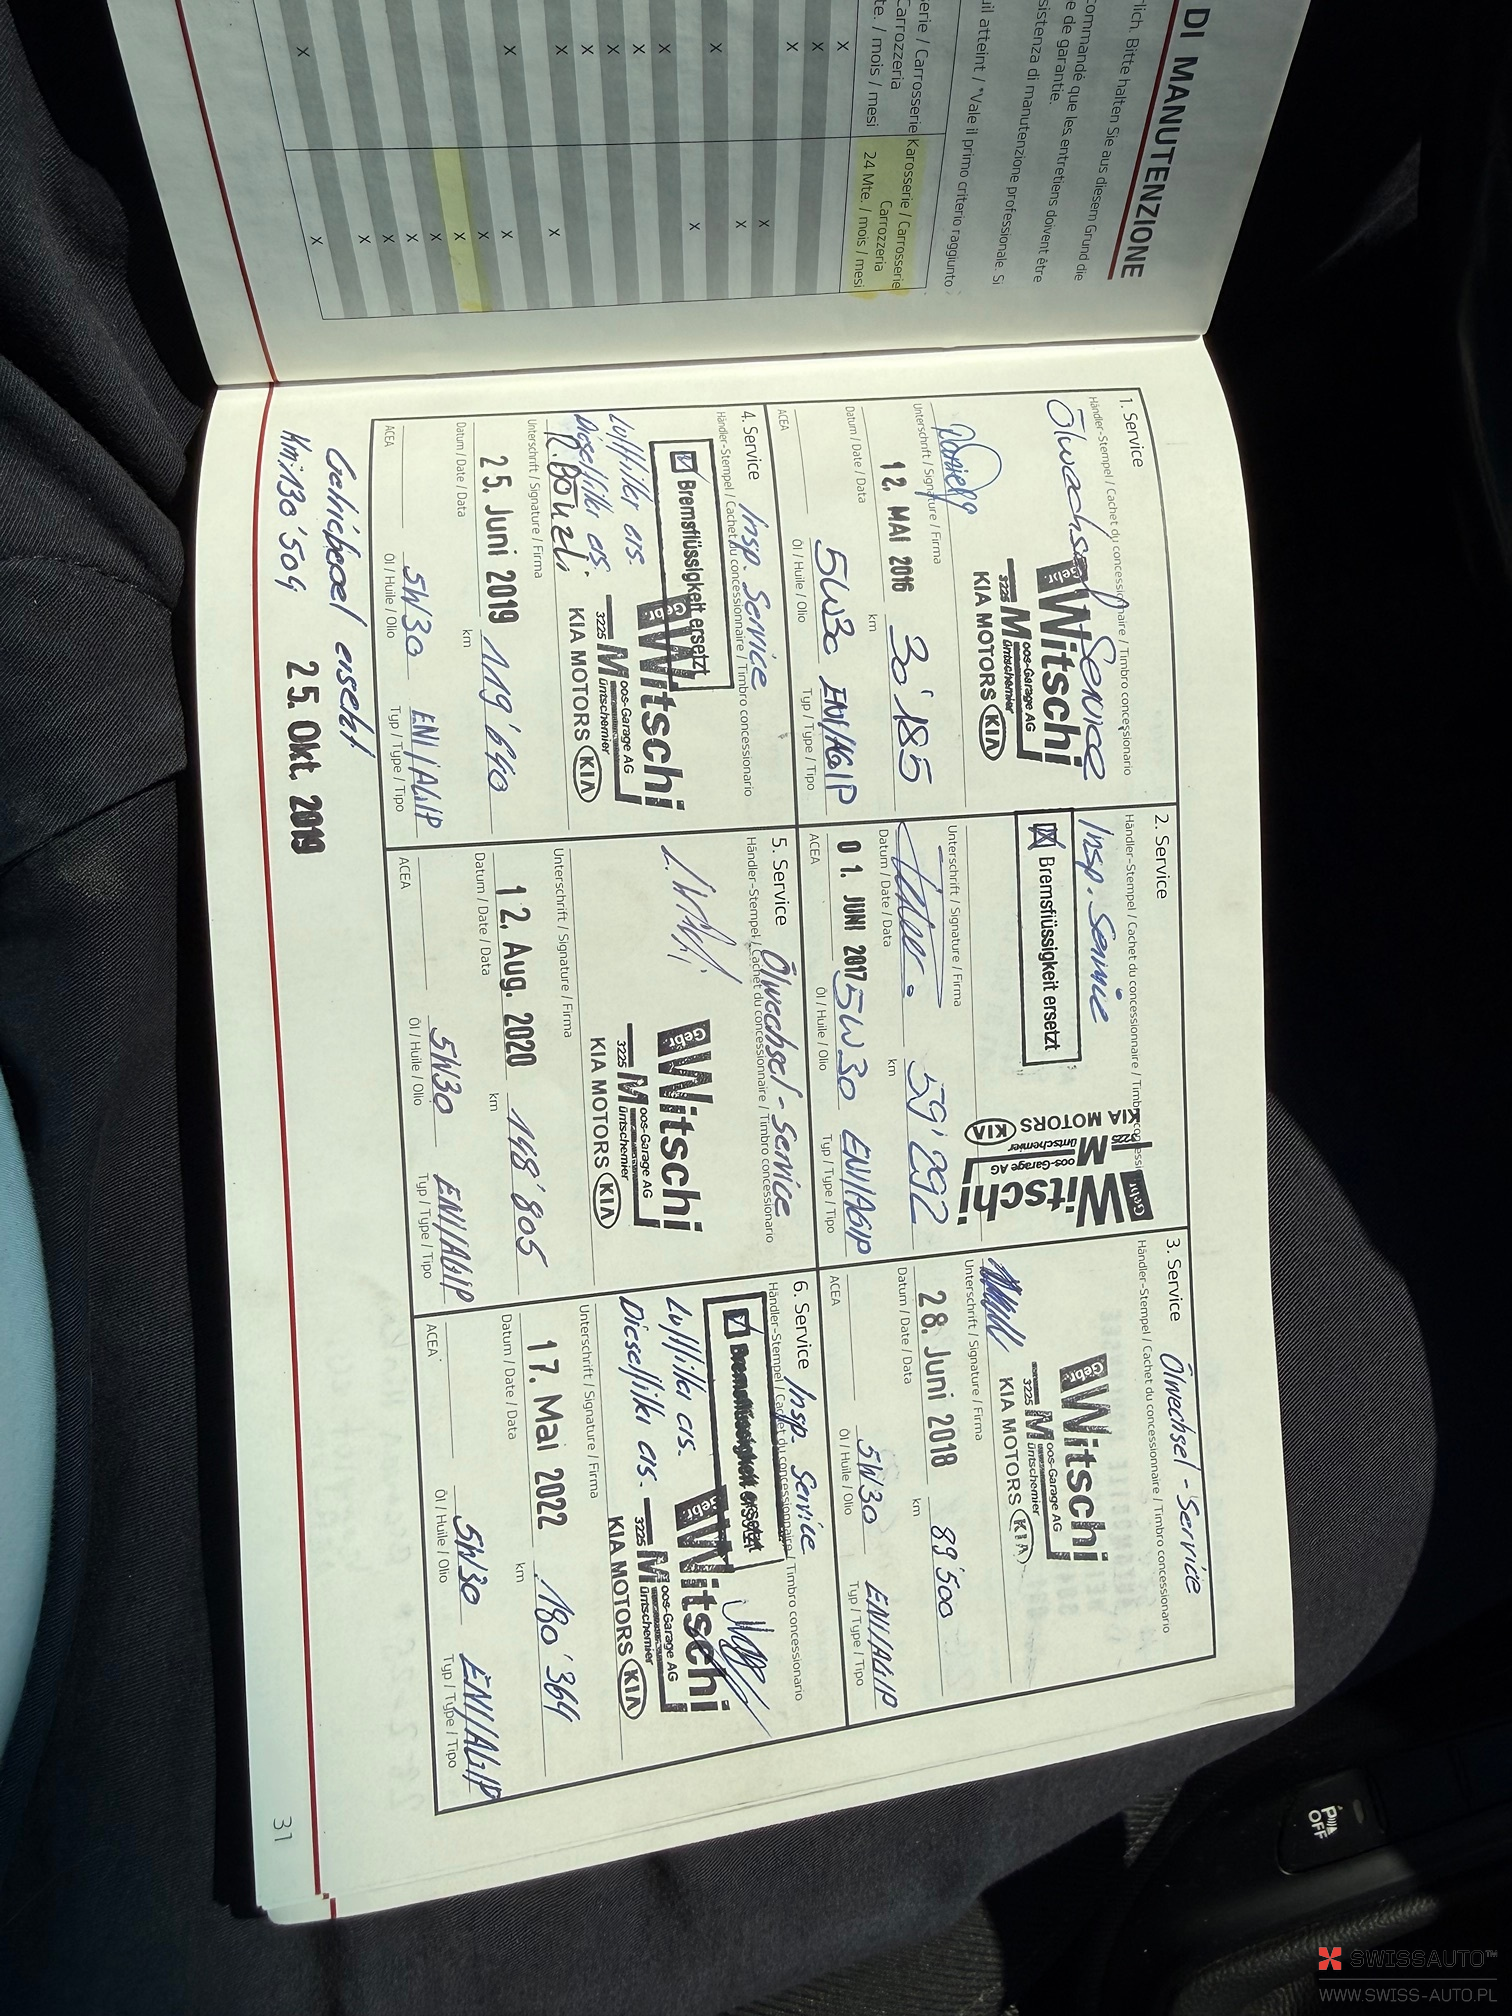 DI MANUTENZIONE
rlich. Bitte halten Sie aus diesem Grund die
commandé que les entretiens doivent être
e de garantie.
sistenza di manutenzione professionale. Si
uil atteint / *Vale il primo criterio raggiunto
erie / Carrosserie
Carrozzeria
te. / mois / mesi
Karosserie / Carrosserie
Carrozzeria
24 Mte. / mois / mesi
1. Service
Händler-Stempel / Cachet du concessionnaire / Timbro concessionario
Ölwechsel Service
Gebr. Witschi
Moos-Garage AG
3225 Müntschemier
KIA MOTORS KIA
Unterschrift / Signature / Firma
12. MAI 2016 30'185
Datum / Date / Data km
5W30 ENI/AGIP
ACEA Öl / Huile / Olio Typ / Type / Tipo
2. Service
Händler-Stempel / Cachet du concessionnaire / Timbro concessionario
Insp. Service
Bremsflüssigkeit ersetzt
Gebr. Witschi
Moos-Garage AG
3225 Müntschemier
KIA MOTORS KIA
Unterschrift / Signature / Firma
59'292
Datum / Date / Data km
01. JUNI 2017 5W30 ENI/AGIP
ACEA Öl / Huile / Olio Typ / Type / Tipo
3. Service Ölwechsel - Service
Händler-Stempel / Cachet du concessionnaire / Timbro concessionario
Gebr. Witschi
Moos-Garage AG
3225 Müntschemier
KIA MOTORS KIA
Unterschrift / Signature / Firma
28. Juni 2018 89'500
Datum / Date / Data km
5W30 ENI/AGIP
ACEA Öl / Huile / Olio Typ / Type / Tipo
4. Service Insp. Service
Händler-Stempel / Cachet du concessionnaire / Timbro concessionario
Bremsflüssigkeit ersetzt
Luftfilter ers.
Dieselfilter ers.
Gebr. Witschi
Moos-Garage AG
3225 Müntschemier
KIA MOTORS KIA
Unterschrift / Signature / Firma
25. Juni 2019 119'640
Datum / Date / Data km
5W30 ENI/AGIP
ACEA Öl / Huile / Olio Typ / Type / Tipo
5. Service Ölwechsel - Service
Händler-Stempel / Cachet du concessionnaire / Timbro concessionario
Gebr. Witschi
Moos-Garage AG
3225 Müntschemier
KIA MOTORS KIA
Unterschrift / Signature / Firma
12. Aug. 2020 148'805
Datum / Date / Data km
5W30 ENI/AGIP
ACEA Öl / Huile / Olio Typ / Type / Tipo
6. Service Insp. Service
Händler-Stempel / Cachet du concessionnaire / Timbro concessionario
Bremsflüssigkeit ersetzt
Luftfilter ers.
Dieselfilter ers.
Gebr. Witschi
Moos-Garage AG
3225 Müntschemier
KIA MOTORS KIA
Unterschrift / Signature / Firma
17. Mai 2022 180'364
Datum / Date / Data km
5W30 ENI/AGIP
ACEA Öl / Huile / Olio Typ / Type / Tipo
Getriebeoel ersetzt
Km: 130'509 25. Okt. 2019
31
P OFF
SWISSAUTO™
WWW.SWISS-AUTO.PL